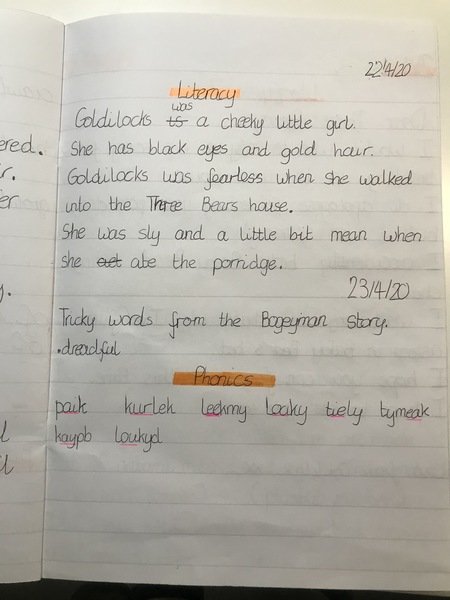 22/4/20
Literacy
was
Goldilocks is a cheeky little girl.
She has black eyes and gold hair.
Goldilocks was fearless when she walked
into the Three Bears house.
She was sly and a little bit mean when
she aet ate the porridge.
23/4/20
Tricky words from the Bogeyman Story.
•dreadful
Phonics
paik kurlek leekmy loaky tiely tymeak
kaypb loukyd